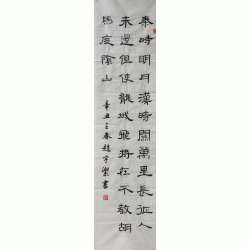 秦時明月漢時關萬里長征人
未還但使龍城飛將在不教胡
馬度陰山
辛丑之春趙宇書